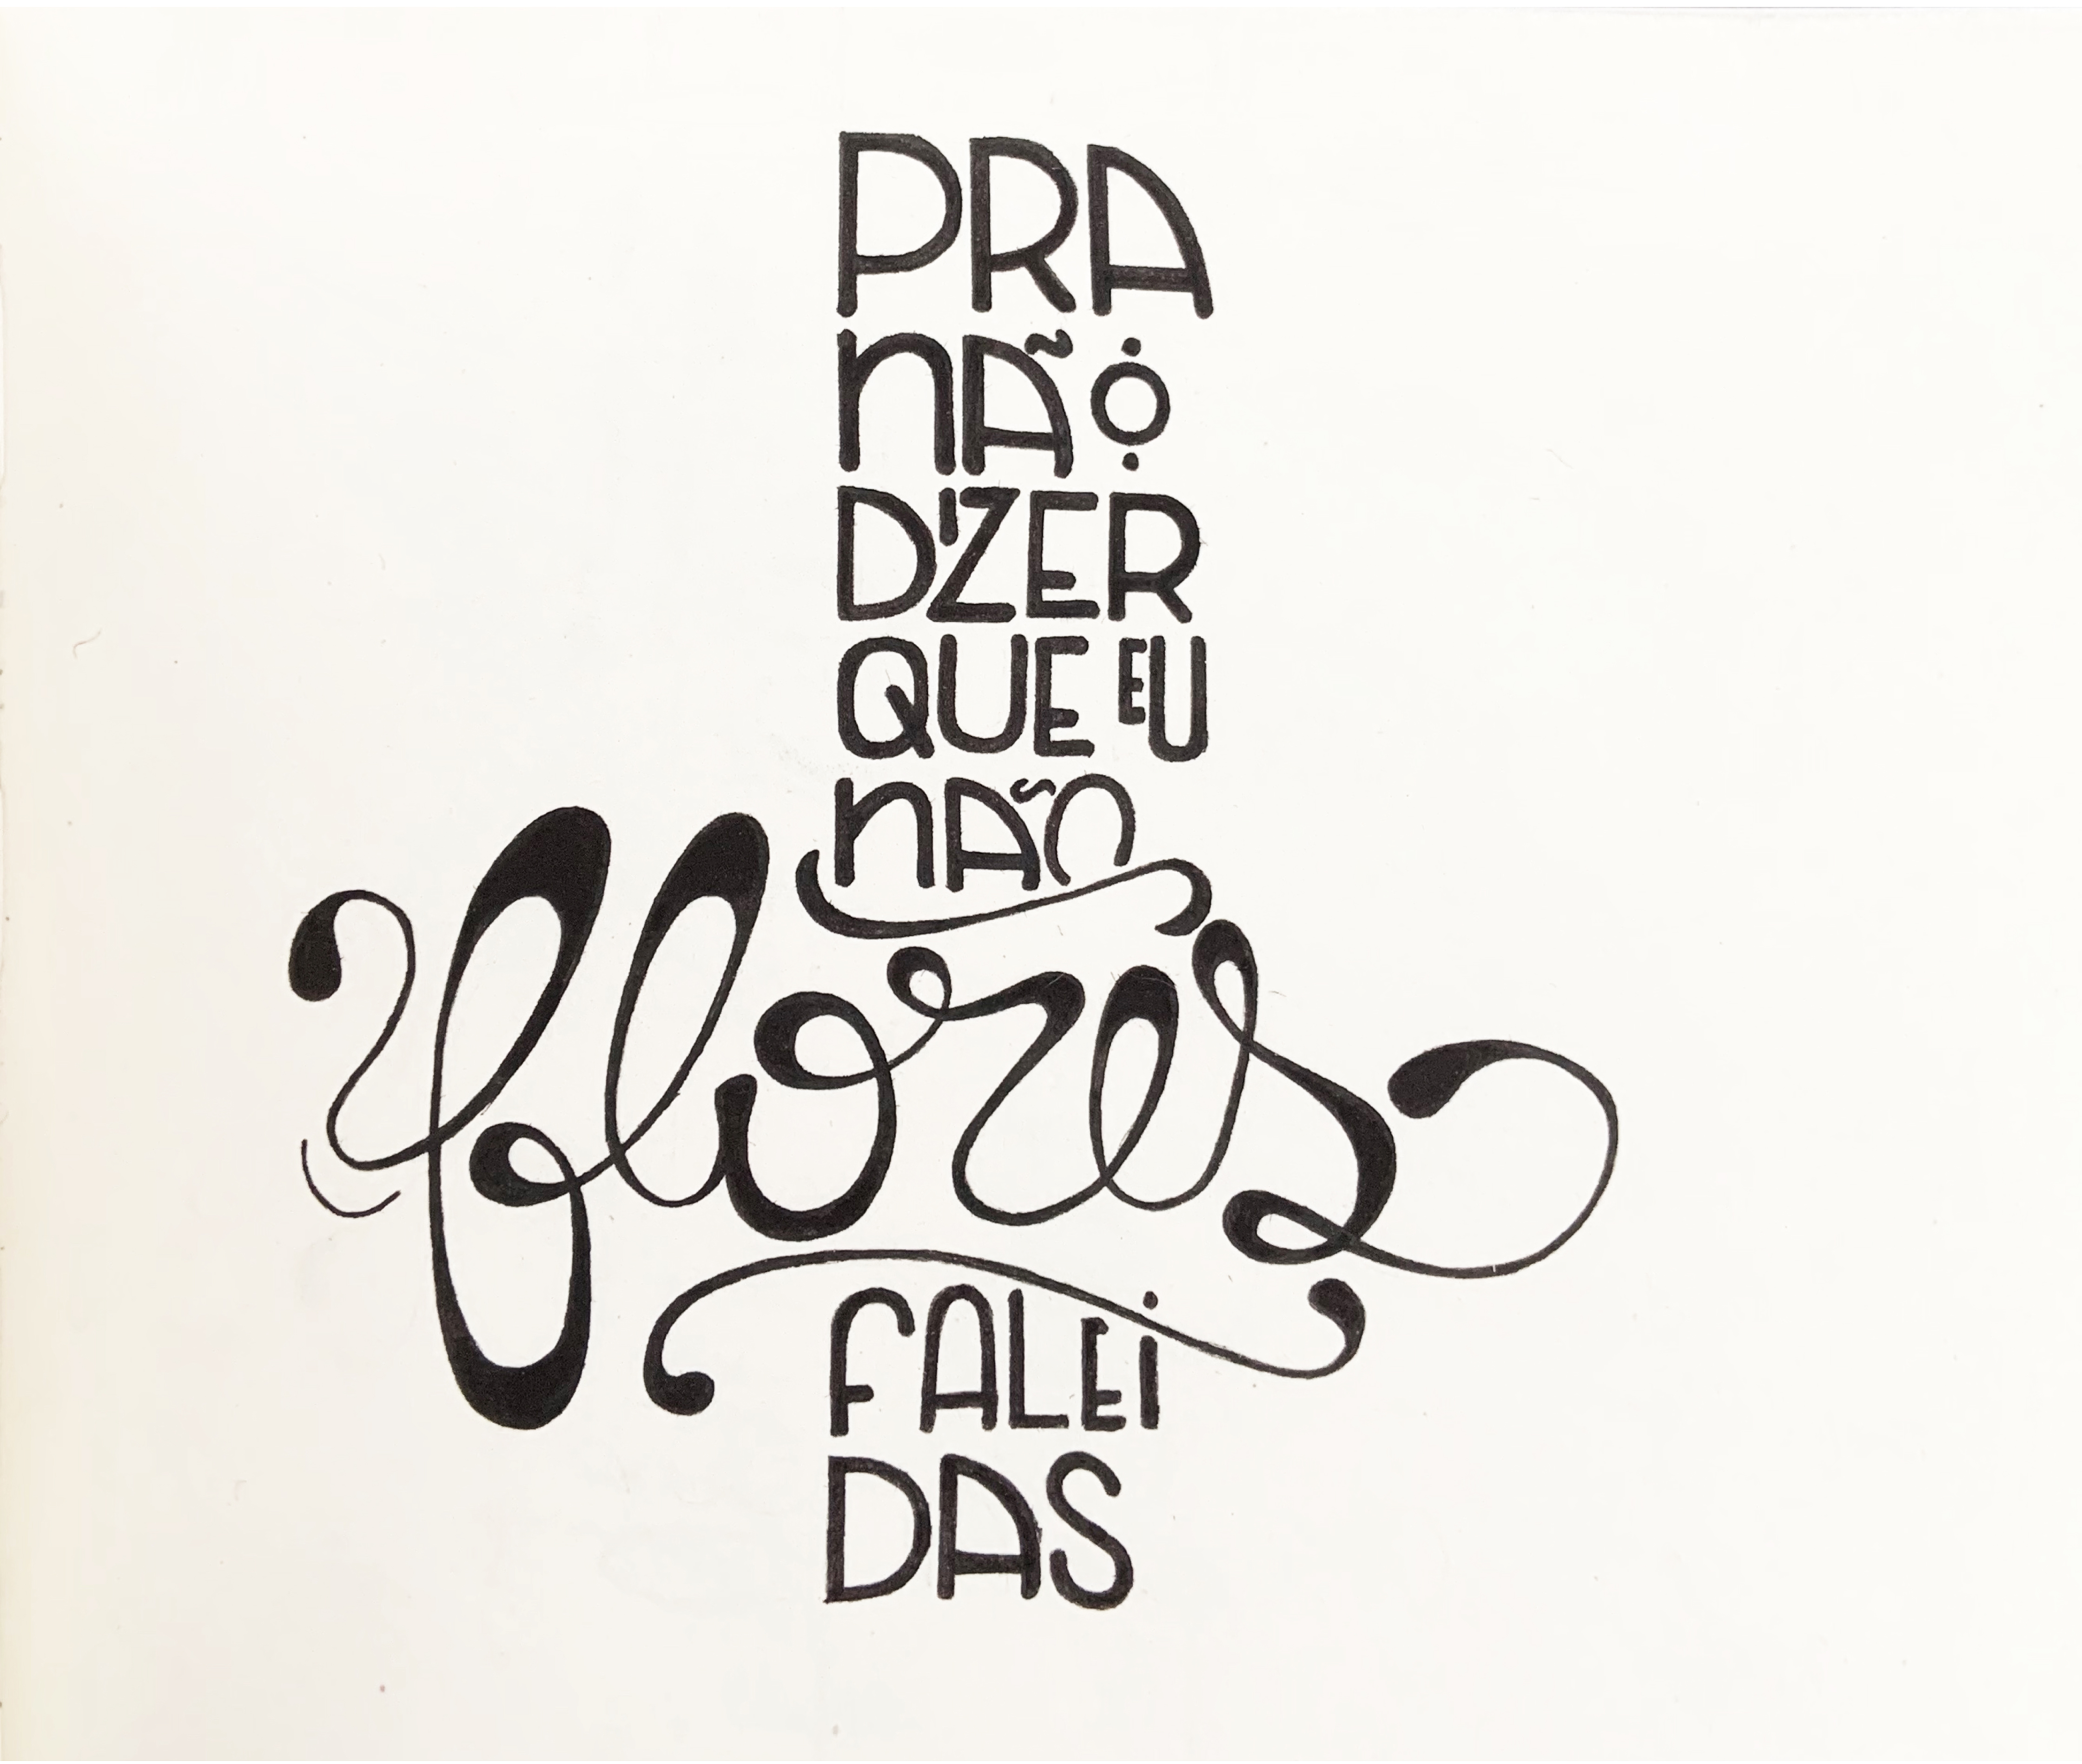 PRA
NÃO
DIZER
QUE EU
NÃO
flores
FALEI
DAS